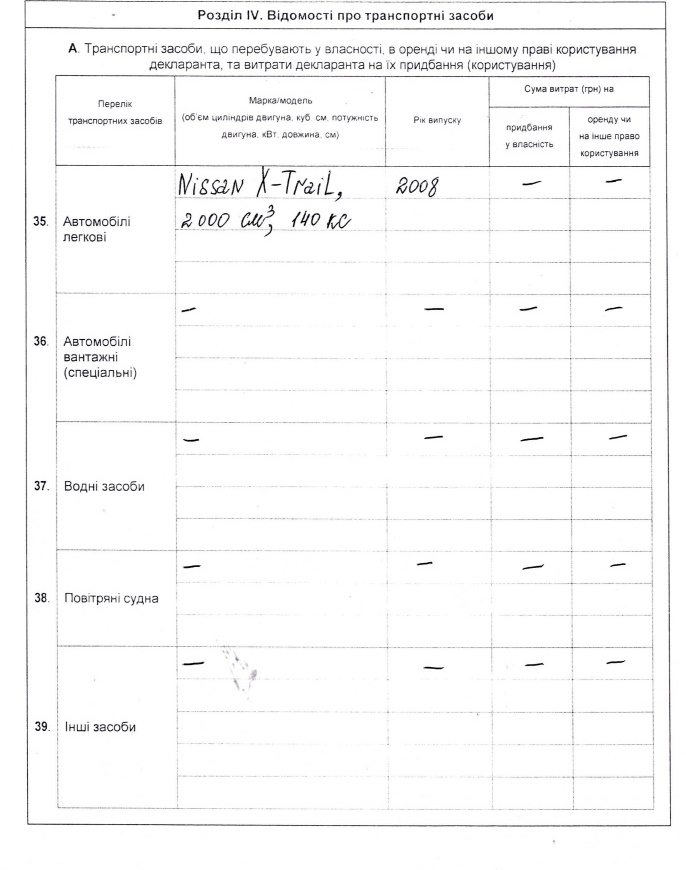 Розділ IV. Відомості про транспортні засоби
А. Транспортні засоби, що перебувають у власності, в оренді чи на іншому праві користування
декларанта, та витрати декларанта на їх придбання (користування)
Перелік
транспортних засобів
Марка/модель
(об'єм циліндрів двигуна, куб. см, потужність
двигуна, кВт, довжина, см)
Рік випуску
Сума витрат (грн) на
придбання
у власність
оренду чи
на інше право
користування
35. Автомобілі
легкові
Nissan X-Trail, 2008 — —
2000 см³, 140 кс
36. Автомобілі
вантажні
(спеціальні)
— — — —
37. Водні засоби
— — — —
38. Повітряні судна
— — — —
39. Інші засоби
— — — —